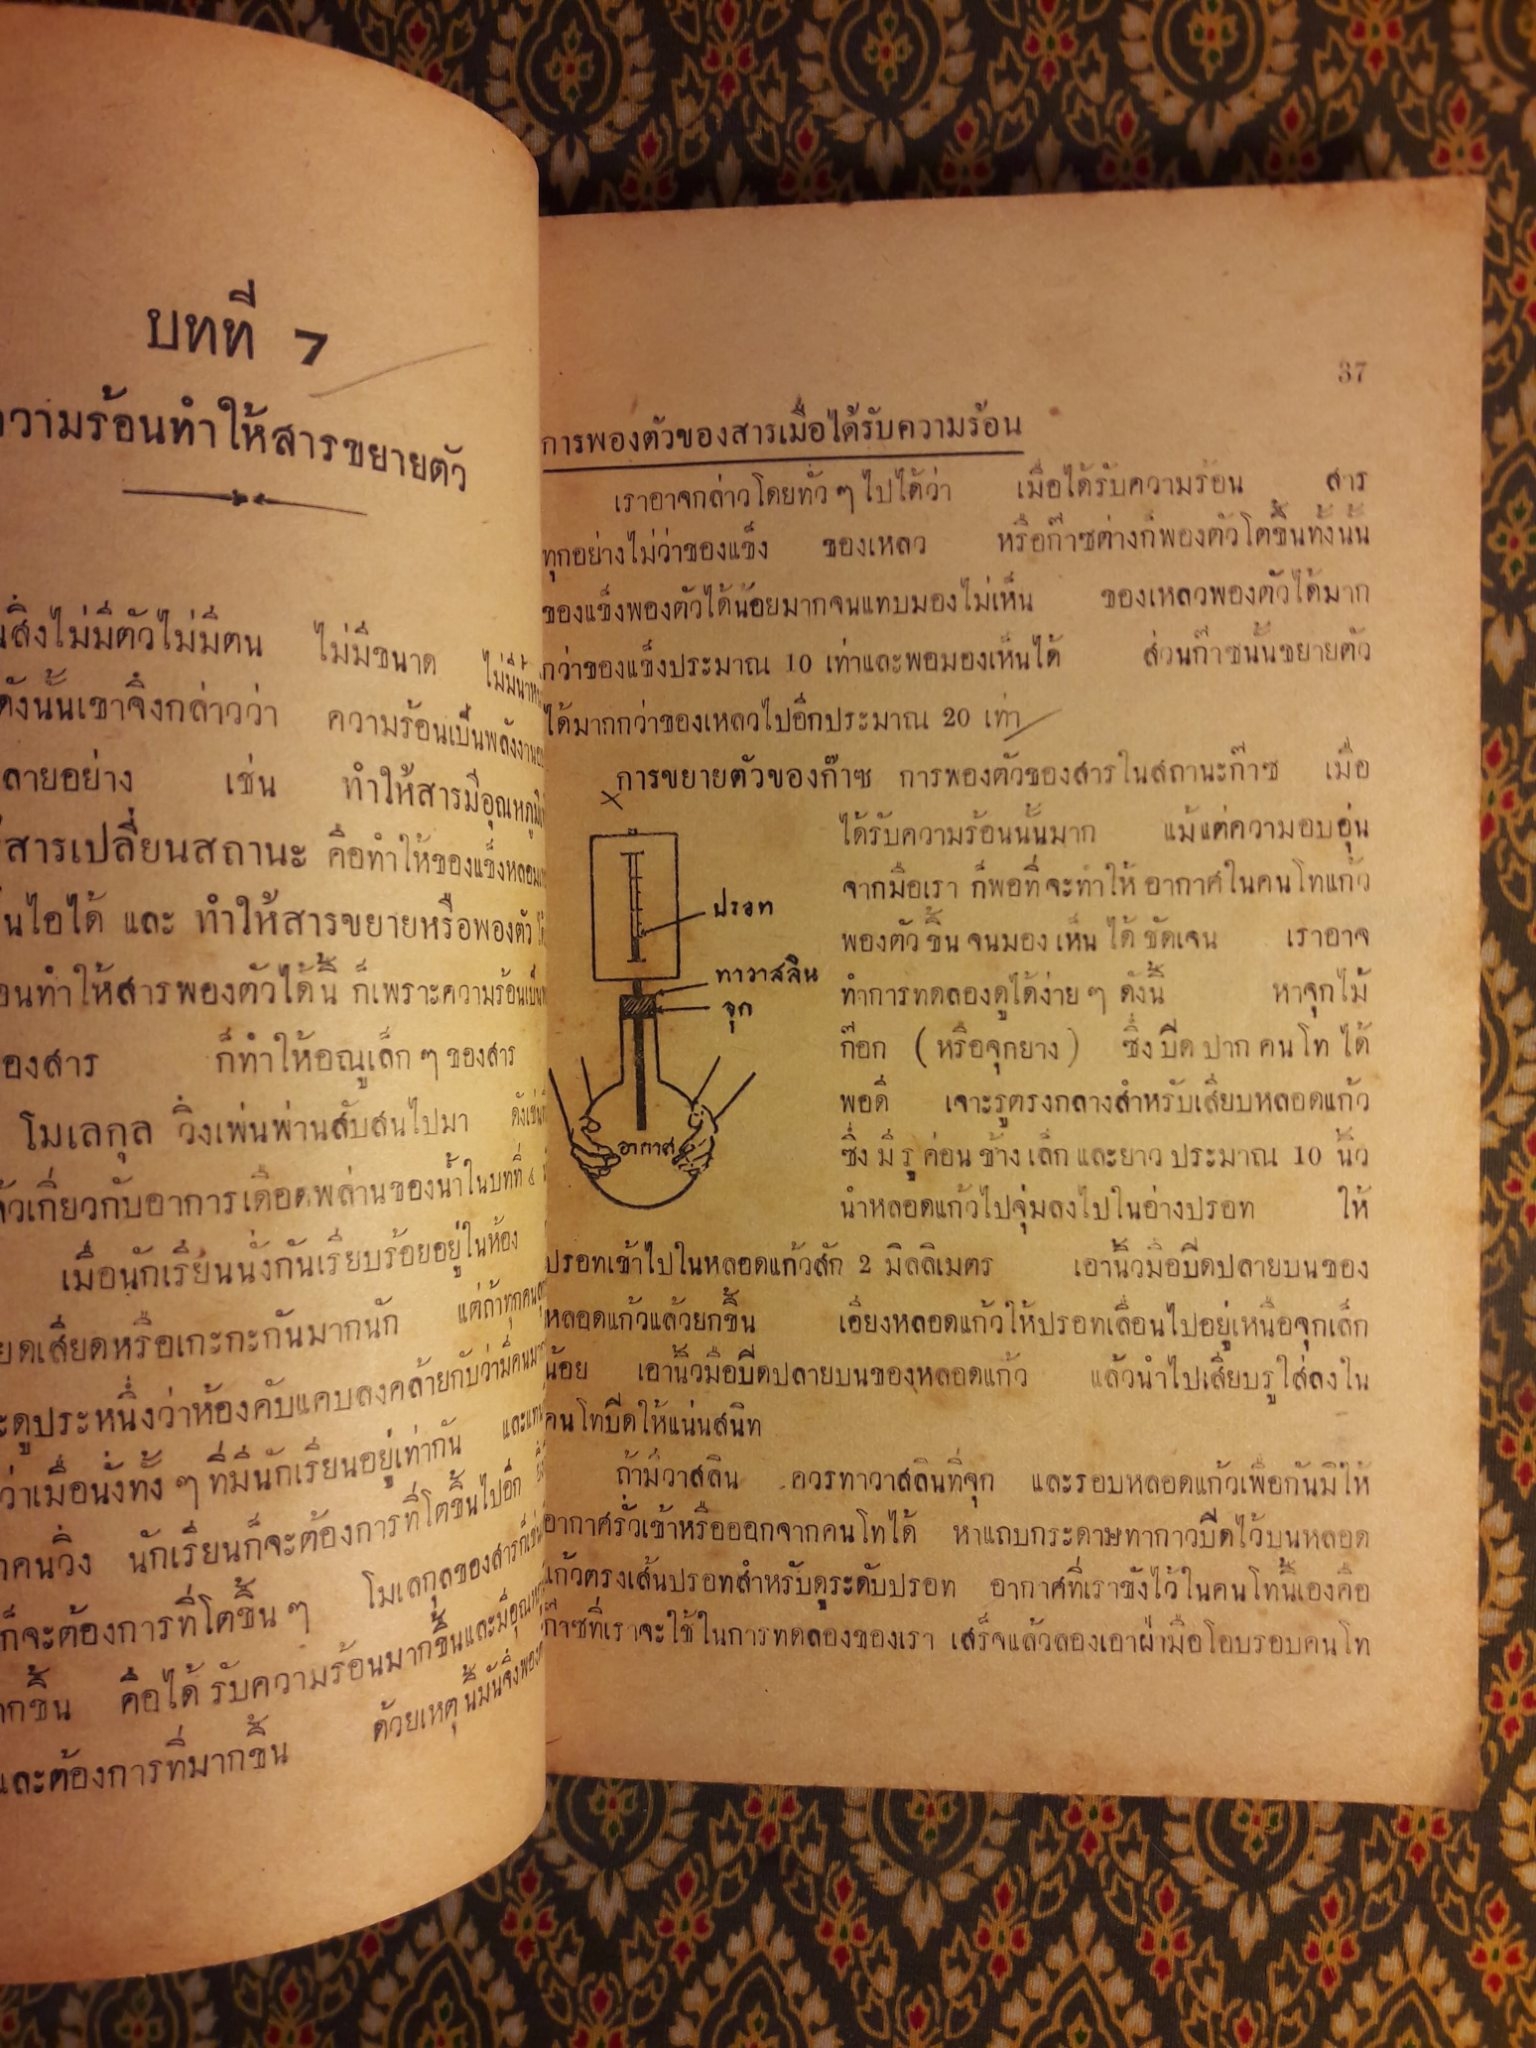 บทที่ 7
ความร้อนทำให้สารขยายตัว
สิ่งไม่มีตัวไม่มีตน ไม่มีขนาด
ดังนั้นเขาจึงกล่าวว่า ความร้อนเป็นพลังงาน
ลายอย่าง เช่น ทำให้สารมีอุณหภูมิ
สารเปลี่ยนสถานะ คือทำให้ของแข็งหลอม
นไอได้ และ ทำให้สารขยายหรือพองตัว
อนทำให้สารพองตัวได้นี้ ก็เพราะความร้อนเป็น
องสาร ก็ทำให้อณูเล็ก ๆ ของสาร
โมเลกุล วิ่งเพ่นพ่านสับสนไปมา ดังเช่น
ล้วเกี่ยวกับอาการเดือดพล่านของน้ำในบทที่
เมื่อนักเรียนนั่งกันเรียบร้อยอยู่ในห้อง
ยดเสียดหรือเกะกะกันมากนัก แต่ถ้าทุกคน
ะดูประหนึ่งว่าห้องคับแคบลงคล้ายกับว่ามีคนมาก
ว่าเมื่อนั่งทั้ง ๆ ที่มีนักเรียนอยู่เท่ากัน
คนวิ่ง นักเรียนก็จะต้องการที่โตขึ้นไปอีก
ก็จะต้องการที่โตขึ้น ๆ โมเลกุลของสารก็เช่น
ากขึ้น คือได้ รับความร้อนมากขึ้นและมีอุณห
และต้องการที่มากขึ้น ด้วยเหตุ นี้มันจึงพอง
37
การพองตัวของสารเมื่อได้รับความร้อน
เราอาจกล่าวโดยทั่ว ๆ ไปได้ว่า เมื่อได้รับความร้อน สาร
ทุกอย่างไม่ว่าของแข็ง ของเหลว หรือก๊าซต่างก็พองตัวโตขึ้นทั้งนั้น
ของแข็งพองตัวได้น้อยมากจนแทบมองไม่เห็น ของเหลวพองตัวได้มาก
กว่าของแข็งประมาณ 10 เท่าและพอมองเห็นได้ ส่วนก๊าซนั้นขยายตัว
ได้มากกว่าของเหลวไปอีกประมาณ 20 เท่า
การขยายตัวของก๊าซ การพองตัวของสารในสถานะก๊าซ เมื่อ
ได้รับความร้อนนั้นมาก แม้แต่ความอบอุ่น
จากมือเรา ก็พอที่จะทำให้ อากาศในคนโทแก้ว
พองตัว ขึ้น จนมอง เห็น ได้ ชัดเจน เราอาจ
ทำการทดลองดูได้ง่าย ๆ ดังนี้ หาจุกไม้
ก๊อก (หรือจุกยาง) ซึ่ง ปิด ปาก คน โท ได้
พอดี เจาะรูตรงกลางสำหรับเสียบหลอดแก้ว
ซึ่ง มี รู ค่อน ข้าง เล็ก และยาว ประมาณ 10 นิ้ว
นำหลอดแก้วไปจุ่มลงไปในอ่างปรอท ให้
ปรอท
ทาวาสลิน
จุก
อากาศ
ปรอทเข้าไปในหลอดแก้วสัก 2 มิลลิเมตร เอานิ้วมือปิดปลายบนของ
หลอดแก้วแล้วยกขึ้น เอียงหลอดแก้วให้ปรอทเลื่อนไปอยู่เหนือจุกเล็ก
น้อย เอานิ้วมือปิดปลายบนของหลอดแก้ว แล้วนำไปเสียบรูใส่ลงใน
คนโทปิดให้แน่นสนิท
ถ้ามีวาสลิน ควรทาวาสลินที่จุก และรอบหลอดแก้วเพื่อกันมิให้
อากาศรั่วเข้าหรือออกจากคนโทได้ หาแถบกระดาษทากาวปิดไว้บนหลอด
แก้วตรงเส้นปรอทสำหรับดูระดับปรอท อากาศที่เราขังไว้ในคนโทนี้เองคือ
ก๊าซที่เราจะใช้ในการทดลองของเรา เสร็จแล้วลองเอาฝ่ามือโอบรอบคนโท